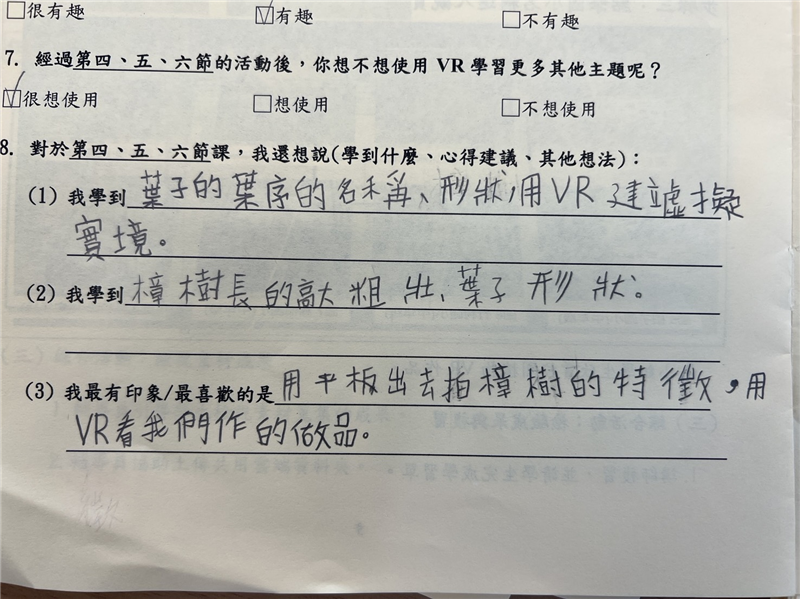 □很有趣 ☑有趣 □不有趣
7. 經過第四、五、六節的活動後，你想不想使用 VR 學習更多其他主題呢？
☑很想使用 □想使用 □不想使用
8. 對於第四、五、六節課，我還想說(學到什麼、心得建議、其他想法)：
(1) 我學到葉子的葉序的名稱、形狀,用VR建虛擬
實境。
(2) 我學到樟樹長的高大粗壯、葉子形狀。
(3) 我最有印象/最喜歡的是用平板出去拍樟樹的特徵，用
VR看我們作的做品。